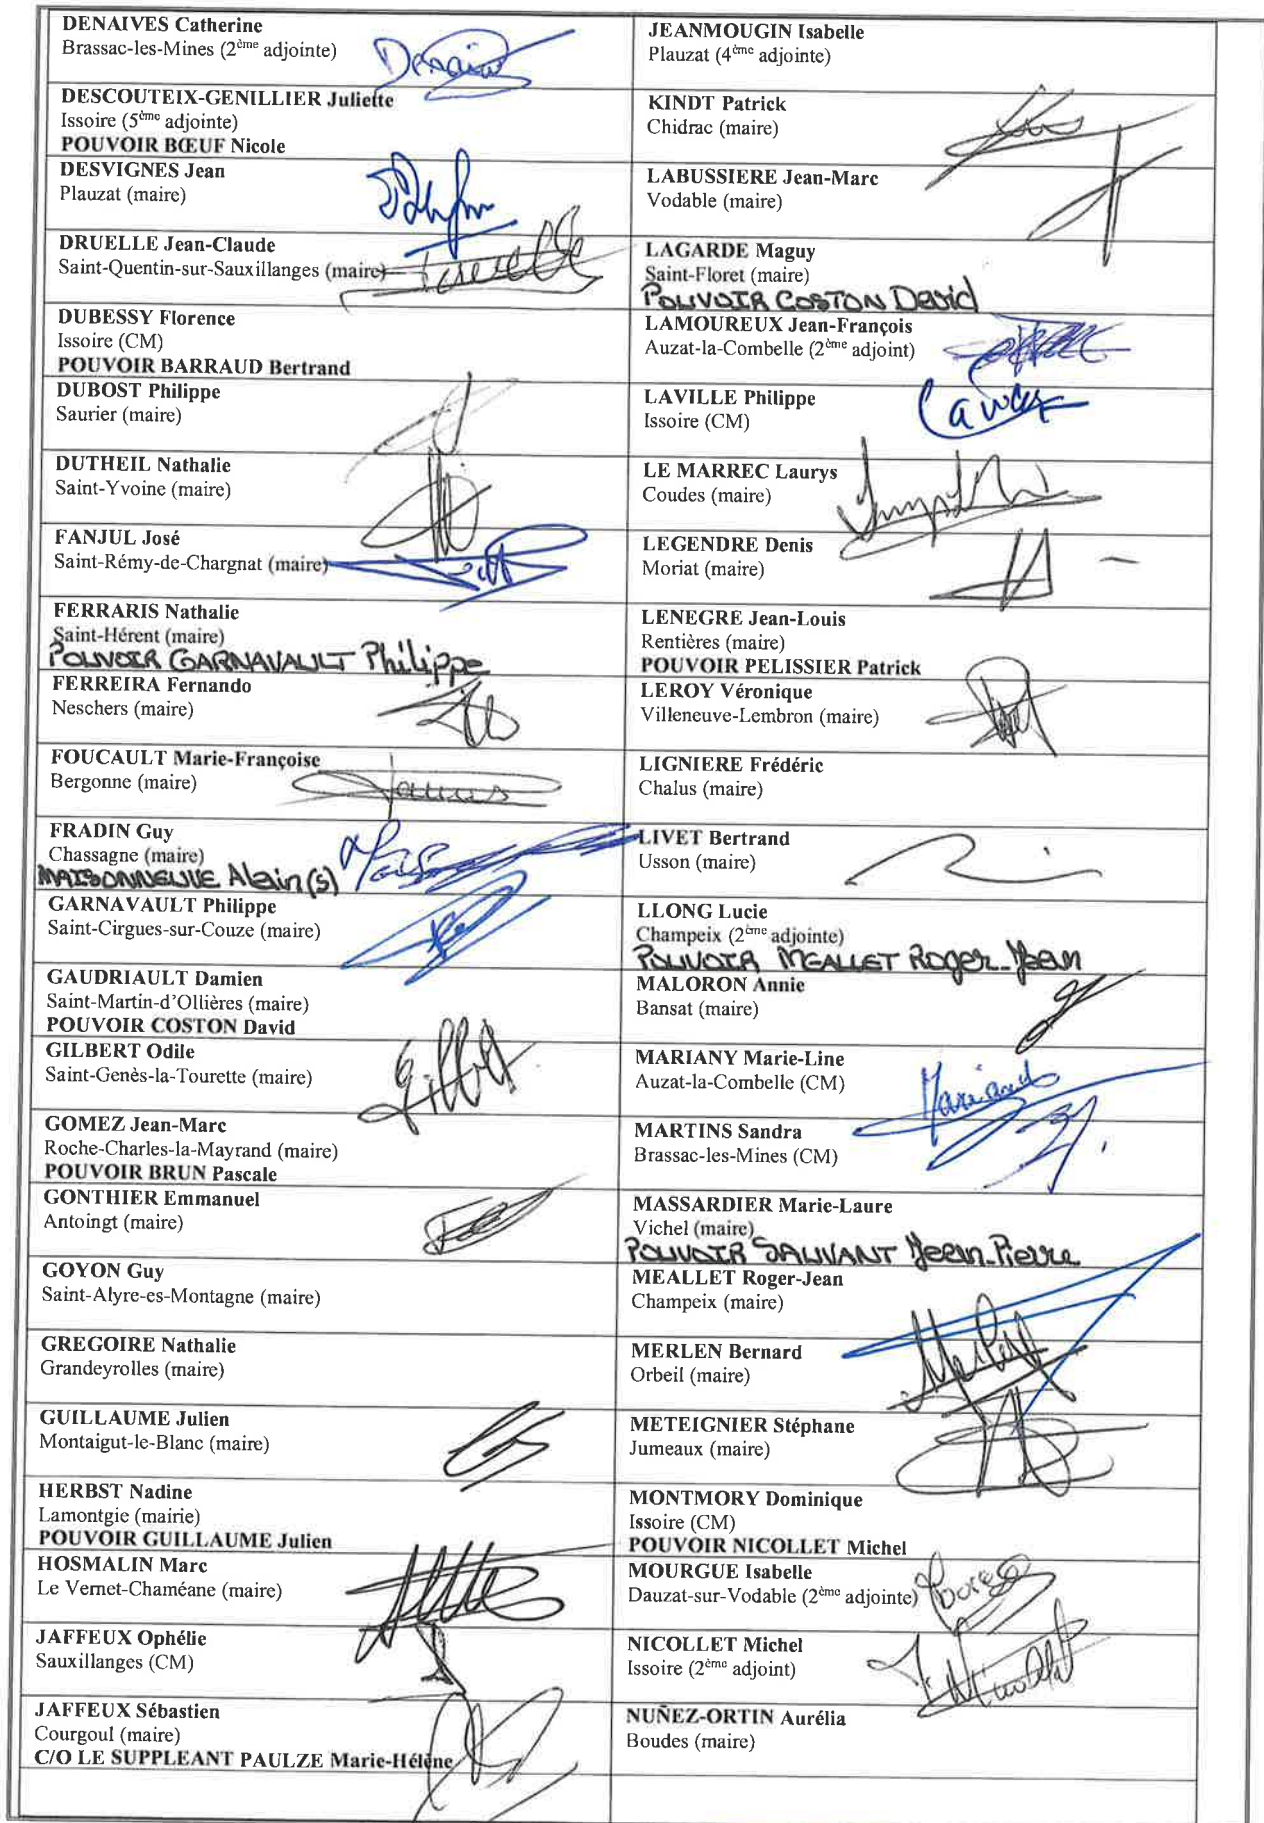 DENAIVES Catherine
Brassac-les-Mines (2ème adjointe)
DESCOUTEIX-GENILLIER Juliette
Issoire (5ème adjointe)
POUVOIR BŒUF Nicole
DESVIGNES Jean
Plauzat (maire)
DRUELLE Jean-Claude
Saint-Quentin-sur-Sauxillanges (maire)
DUBESSY Florence
Issoire (CM)
POUVOIR BARRAUD Bertrand
DUBOST Philippe
Saurier (maire)
DUTHEIL Nathalie
Saint-Yvoine (maire)
FANJUL José
Saint-Rémy-de-Chargnat (maire)
FERRARIS Nathalie
Saint-Hérent (maire)
POUVOIR GARNAVAULT Philippe
FERREIRA Fernando
Neschers (maire)
FOUCAULT Marie-Françoise
Bergonne (maire)
FRADIN Guy
Chassagne (maire)
MAISONNEUVE Alain (s)
GARNAVAULT Philippe
Saint-Cirgues-sur-Couze (maire)
GAUDRIAULT Damien
Saint-Martin-d'Ollières (maire)
POUVOIR COSTON David
GILBERT Odile
Saint-Genès-la-Tourette (maire)
Gilbert
GOMEZ Jean-Marc
Roche-Charles-la-Mayrand (maire)
POUVOIR BRUN Pascale
GONTHIER Emmanuel
Antoingt (maire)
GOYON Guy
Saint-Alyre-es-Montagne (maire)
GREGOIRE Nathalie
Grandeyrolles (maire)
GUILLAUME Julien
Montaigut-le-Blanc (maire)
HERBST Nadine
Lamontgie (mairie)
POUVOIR GUILLAUME Julien
HOSMALIN Marc
Le Vernet-Chaméane (maire)
JAFFEUX Ophélie
Sauxillanges (CM)
JAFFEUX Sébastien
Courgoul (maire)
C/O LE SUPPLEANT PAULZE Marie-Hélène
JEANMOUGIN Isabelle
Plauzat (4ème adjointe)
KINDT Patrick
Chidrac (maire)
LABUSSIERE Jean-Marc
Vodable (maire)
LAGARDE Maguy
Saint-Floret (maire)
POUVOIR COSTON David
LAMOUREUX Jean-François
Auzat-la-Combelle (2ème adjoint)
LAVILLE Philippe
Issoire (CM)
LE MARREC Laurys
Coudes (maire)
LEGENDRE Denis
Moriat (maire)
LENEGRE Jean-Louis
Rentières (maire)
POUVOIR PELISSIER Patrick
LEROY Véronique
Villeneuve-Lembron (maire)
LIGNIERE Frédéric
Chalus (maire)
LIVET Bertrand
Usson (maire)
LLONG Lucie
Champeix (2ème adjointe)
POUVOIR MEALLET Roger-Jean
MALORON Annie
Bansat (maire)
MARIANY Marie-Line
Auzat-la-Combelle (CM)
MARTINS Sandra
Brassac-les-Mines (CM)
MASSARDIER Marie-Laure
Vichel (maire)
POUVOIR SAUVANT Jean-Pierre
MEALLET Roger-Jean
Champeix (maire)
MERLEN Bernard
Orbeil (maire)
METEIGNIER Stéphane
Jumeaux (maire)
MONTMORY Dominique
Issoire (CM)
POUVOIR NICOLLET Michel
MOURGUE Isabelle
Dauzat-sur-Vodable (2ème adjointe)
NICOLLET Michel
Issoire (2ème adjoint)
NUÑEZ-ORTIN Aurélia
Boudes (maire)